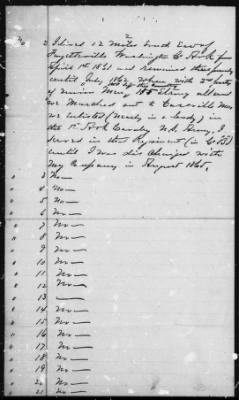 2 I lived 12 miles South East of
Fayetteville Washington Co Ark from
April 1st 1861 and remained there
until July 1862, when with
of Union Men, 155 strong all and
we marched out to Cassville Mo
we enlisted (nearly in a body) in
the 1st Ark Cavalry U.S. Army, I
served in that Regiment (in Co
until I was discharged with
my Company in August 1865.
" 3 No—
" 4 No—
" 5 No—
" 6 No—
" 7 No—
" 8 No—
" 9 No—
" 10 No—
" 11 No—
" 12 No—
" 13 —
" 14 No—
" 15 No—
" 16 No—
" 17 No—
" 18 No—
" 19 No—
" 20 No—
" 21 No—